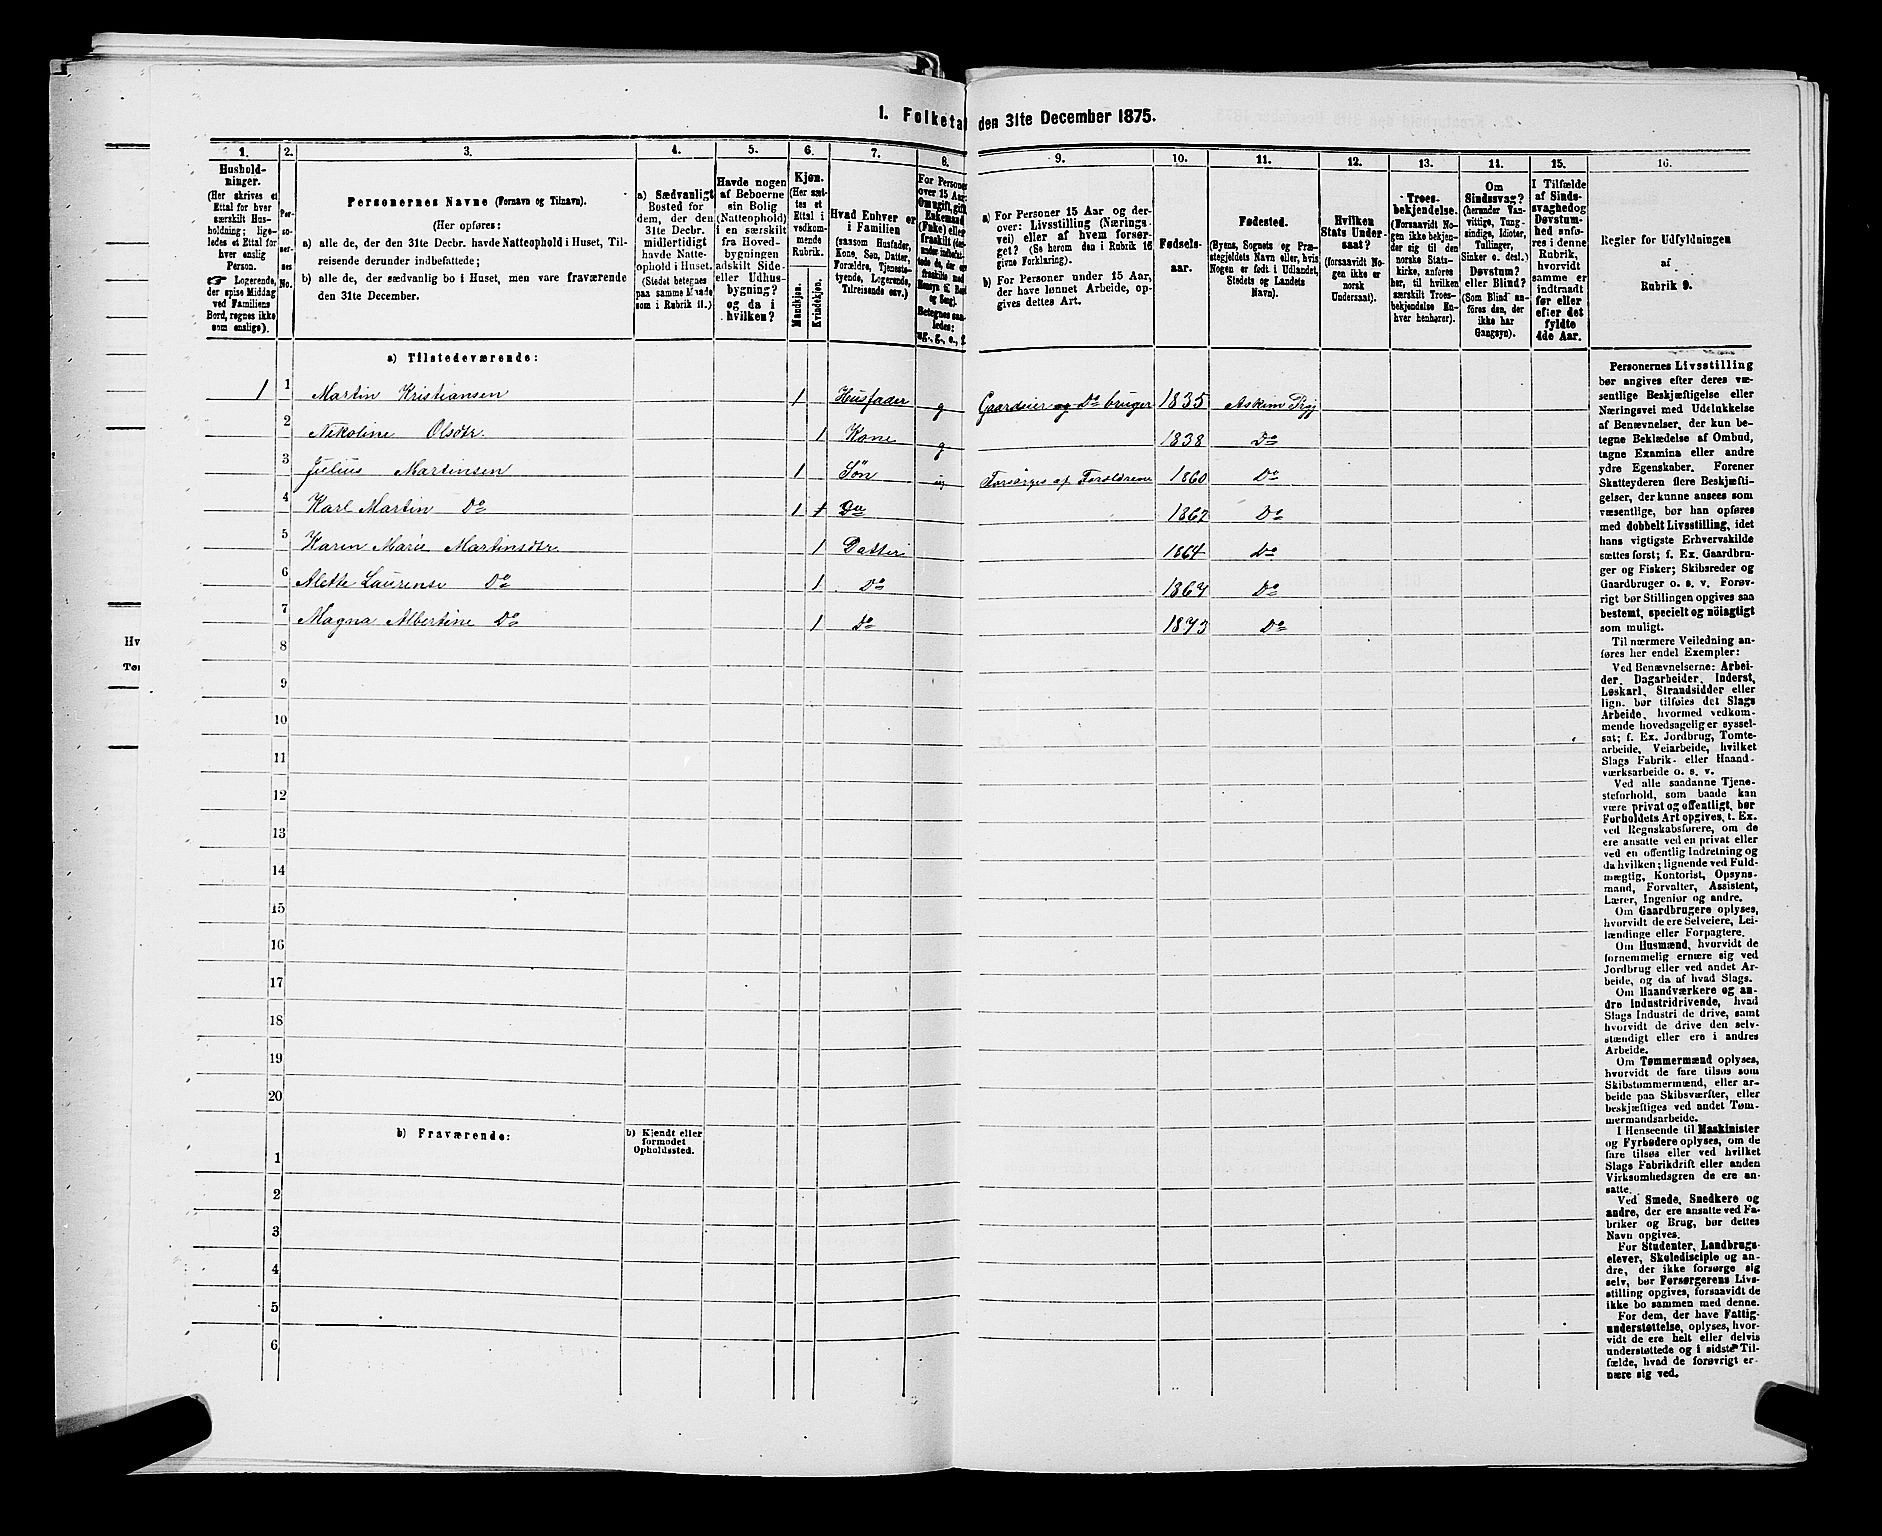 1. Folketal den 31te December 1875.
1.
2.
3.
4.
5.
6.
7.
8.
9.
10.
11.
12.
13.
14.
15.
16.
Hushold-
ninger.
(Her skrives et
Ettal for hver
særskilt Hus-
holdning; lige-
ledes et Ettal for
hver enslig
Person.
☞ Logerende,
der spise Middag
ved Familiens
Bord, regnes ikke
som enslige).
Per-
so-
ner-
nes
No.
Personernes Navne (Fornavn og Tilnavn).
(Her opføres:
a) alle de, der den 31te Decbr. havde Natteophold i Huset, Til-
reisende derunder indbefattede;
b) alle de, der sædvanlig bo i Huset, men vare fraværende
den 31te December.
a) Sædvanligt
Bosted for
dem, der den
31te Decbr.
midlertidigt
havde Natte-
ophold i Huset.
(Stedet betegnes
paa samme Maade
som i Rubrik 11.)
Havde nogen
af Beboerne
sin Bolig
(Natteophold)
i en særskilt
fra Hoved-
bygningen
adskilt Side-
eller Udhus-
bygning?
og da i
hvilken?
Kjøn.
(Her sæt-
tes et
Ettal i
vedkom-
mende
Rubrik.
Mandkjøn.
Kvindekjøn.
Hvad Enhver er
i Familien
(saasom Husfader,
Kone, Søn, Datter,
Forældre, Tjeneste-
tyende, Logerende,
Tilreisende osv.)
For Personer
over 15 Aar:
Om ugift, gift,
Enkemand
(Enke) eller
fraskilt
Betegnes saa-
ledes:
ug., g., e., f.
a) For Personer 15 Aar og der-
over: Livsstilling (Nærings-
vei) eller af hvem forsør-
get? (Se herom den i Rubrik 16
givne Forklaring).
b) For Personer under 15 Aar,
der have lønnet Arbeide, op-
gives dettes Art.
Fødsels-
aar.
Fødested.
(Byens, Sognets og Præ-
stegjeldets Navn eller, hvis
Nogen er født i Udlandet,
Stedets og Landets
Navn).
Hvilken
Stats Under-
saat?
(forsaavidt No-
gen ikke er
norsk
Undersaat).
Troes-
bekjendelse.
(Forsaavidt No-
gen ikke bekjen-
der sig til den
norske Stats-
kirke, anføres
her, til hvilken
særskilt Troes-
bekjendelse En-
hver henhører).
Om
Sindssvag?
(herunder Van-
vittige, Tung-
sindige, Idioter,
Tullinger,
Sinker o. desl.)
Døvstum?
eller Blind?
(Som Blind an-
føres den, der
ikke har
Gangsyn).
I Tilfælde
af Sinds-
svaghed og
Døvstum-
hed anfø-
res i denne
Rubrik,
hvorvidt
samme er
indtraadt
før eller
efter det
fyldte
4de Aar.
Regler for Udfyldningen
af
Rubrik 9.
a) Tilstedeværende:
1 1 Martin Kristiansen 1 Husfader g Gaardeier og Do bruger 1835 Askim Prgj
2 Nikoline Olsdtr. 1 Kone g 1838 Do
3 Julius Martinsen 1 Søn ug Forsørges af Forældrene 1860 Do
4 Karl Martin Do 1 1 Do 1862 Do
5 Karen Marie Martinsdtr. 1 Datter 1864 Do
6 Alette Laurense Do 1 Do 1867 Do
7 Magna Albertine Do 1 Do 1873 Do
8
9
10
11
12
13
14
15
16
17
18
19
20
b) Fraværende:
b) Kjendt eller
formodet
Opholdssted.
1
2
3
4
5
6
Personernes Livsstilling
bør angives efter deres væ-
sentlige Beskjæftigelse eller
Næringsvei med Udelukkelse
af Benævnelser, der kun be-
tegne Beklædelse af Ombud,
tagne Examina eller andre
ydre Egenskaber. Forener
Skatteyderen flere Beskjæfti-
gelser, der kunne ansees som
væsentlige, bør han opføres
med dobbelt Livsstilling, idet
hans vigtigste Erhvervskilde
sættes først; f. Ex. Gaardbru-
ger og Fisker; Skibsreder og
Gaardbruger o. s. v. Forøv-
rigt bør Stillingen opgives saa
bestemt, specielt og nöiagtigt
som muligt.
Til nærmere Veiledning an-
føres her endel Exempler:
Ved Benævnelserne: Arbei-
der, Dagarbeider, Inderst,
Løskarl, Strandsidder eller
lign. bør tilføies det Slags
Arbeide, hvormed vedkom-
mende hovedsagelig er syssel-
sat; f. Ex. Jordbrug, Tomte-
arbeide, Veiarbeide, hvilket
Slags Fabrik- eller Haand-
værksarbeide o. s. v.
Ved alle saadanne Tjene-
steforhold, som baade kan
være privat og offentligt, bør
Forholdets Art opgives, t. Ex.
ved Regnskabsførere, om de
ere ansatte ved en privat eller
ved en offentlig Indretning og
da hvilken; lignende ved Fuld-
mægtig, Kontorist, Opsyns-
mand, Forvalter, Assistent,
Lærer, Ingeniør og andre.
Om Gaardbrugere oplyses,
hvorvidt de ere Selveiere, Lei-
lændinge eller Forpagtere.
Om Husmænd, hvorvidt de
fornemmelig ernære sig ved
Jordbrug eller ved andet Ar-
beide, og da af hvad Slags.
Om Haandværkere og an-
dre Industridrivende, hvad
Slags Industri de drive, samt
hvorvidt de drive den selv-
stændigt eller ere i andres
Arbeide.
Om Tømmermænd oplyses,
hvorvidt de fare tilsøs som
Skibstømmermænd, eller ar-
beide paa Skibsværfter, eller
beskjæftiges ved andet Tøm-
mermandsarbeide.
I Henseende til Maskinister
og Fyrbødere oplyses, om de
fare tilsøs eller ved hvilket
Slags Fabrikdrift eller anden
Virksomhedsgren de ere an-
satte.
Ved Smede, Snedkere og
andre, der ere ansatte ved Fa-
briker og Brug, bør dettes
Navn opgives.
For Studenter, Landbrugs-
elever, Skoledisciple og an-
dre, der ikke forsørge sig
selv, bør Forsørgerens Livs-
stilling opgives, forsaavidt de
ikke bo sammen med denne.
For dem, der have Fattig-
understøttelse, oplyses, hvor-
vidt de ere helt eller delvis
understøttede og i sidste Til-
fælde, hvad de forøvrigt er-
nære sig ved.